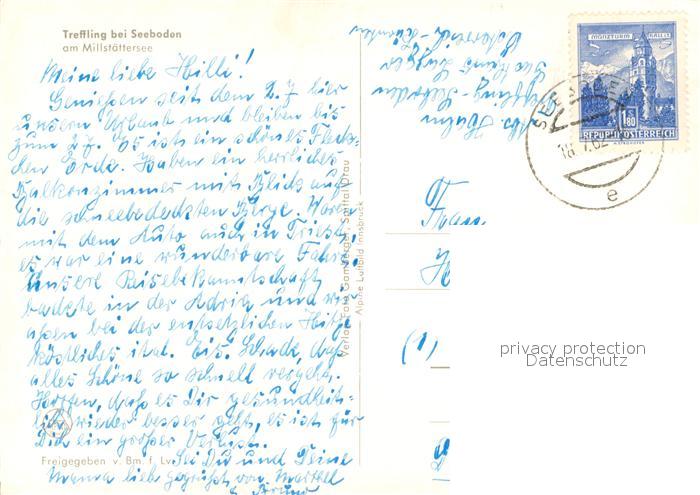 Treffling bei Seeboden
am Millstättersee
Meine liebe Hilli!
Genießen seit dem 2.7 hier
unsern Urlaub und bleiben bis
zum 27. Es ist ein schönes Fleck-
chen Erde. Haben ein herrliches
Balkonzimmer mit Blick auf
die schneebedeckten Berge. Waren
mit dem Auto auch in Triest,
es war eine wunderbare Fahrt.
Unsere Reisebekanntschaft
badete in der Adria und wir
aßen bei der entsetzlichen Hitze
köstliches ital. Eis. Schade, daß
alles Schöne so schnell vergeht.
Hoffen, daß es Dir gesundheit-
lich wieder besser geht, es ist für
Dich ein großer Verlust.
Freigegeben v. Bm. f. Lv.
Sei Du und Deine
Mama lieb gegrüßt von
Verlag Foto Gamberger, Spittal/Drau
Alpine Luftbild Innsbruck
Treffling Seeboden
Österreich - Kärnten
MÜNZTURM HALL I. T.
1.80
REPUBLIK ÖSTERREICH
18.7.62
e
Frau
H
(1)
privacy protection
Datenschutz